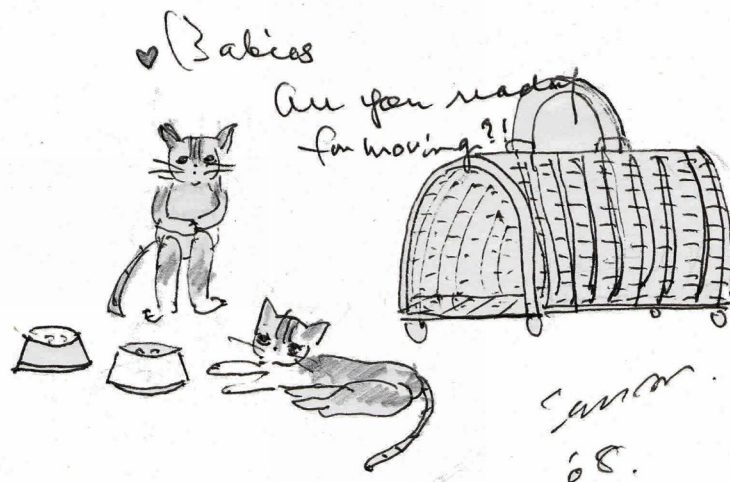 ♥ Babies
are you ready
for moving?!
08.